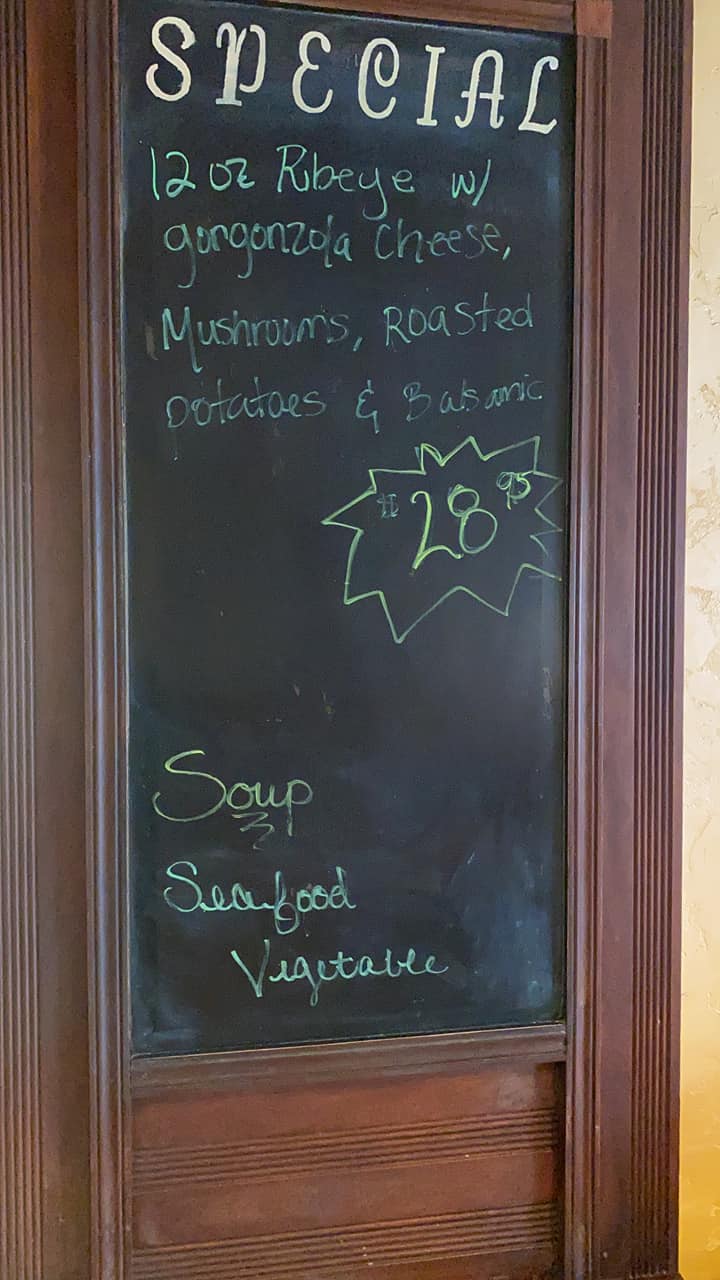 SPECIAL
12 oz Ribeye w/
gorgonzola cheese,
Mushrooms, Roasted
potatoes & Balsamic
$28 95
Soup
Seafood
Vegetable